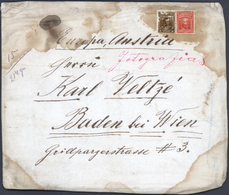 Europa, Austria
Fotografias
Herrn
Karl Veltzé
Baden bei Wien
Grillparzerstrasse # 3.